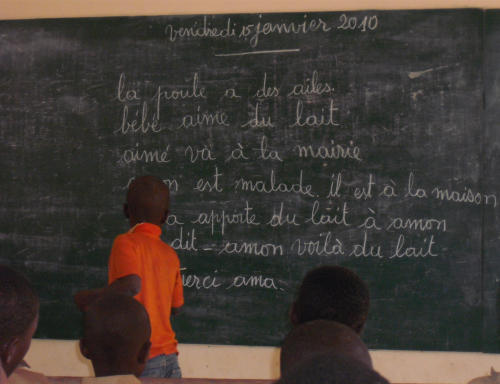 vendredi 15 janvier 2010
la poule a des ailes.
bébé aime du lait
aimé và à la mairie
est malade. il est à la maison
a apporte du lait à amon
dit - amon voilà du lait
merci ama.